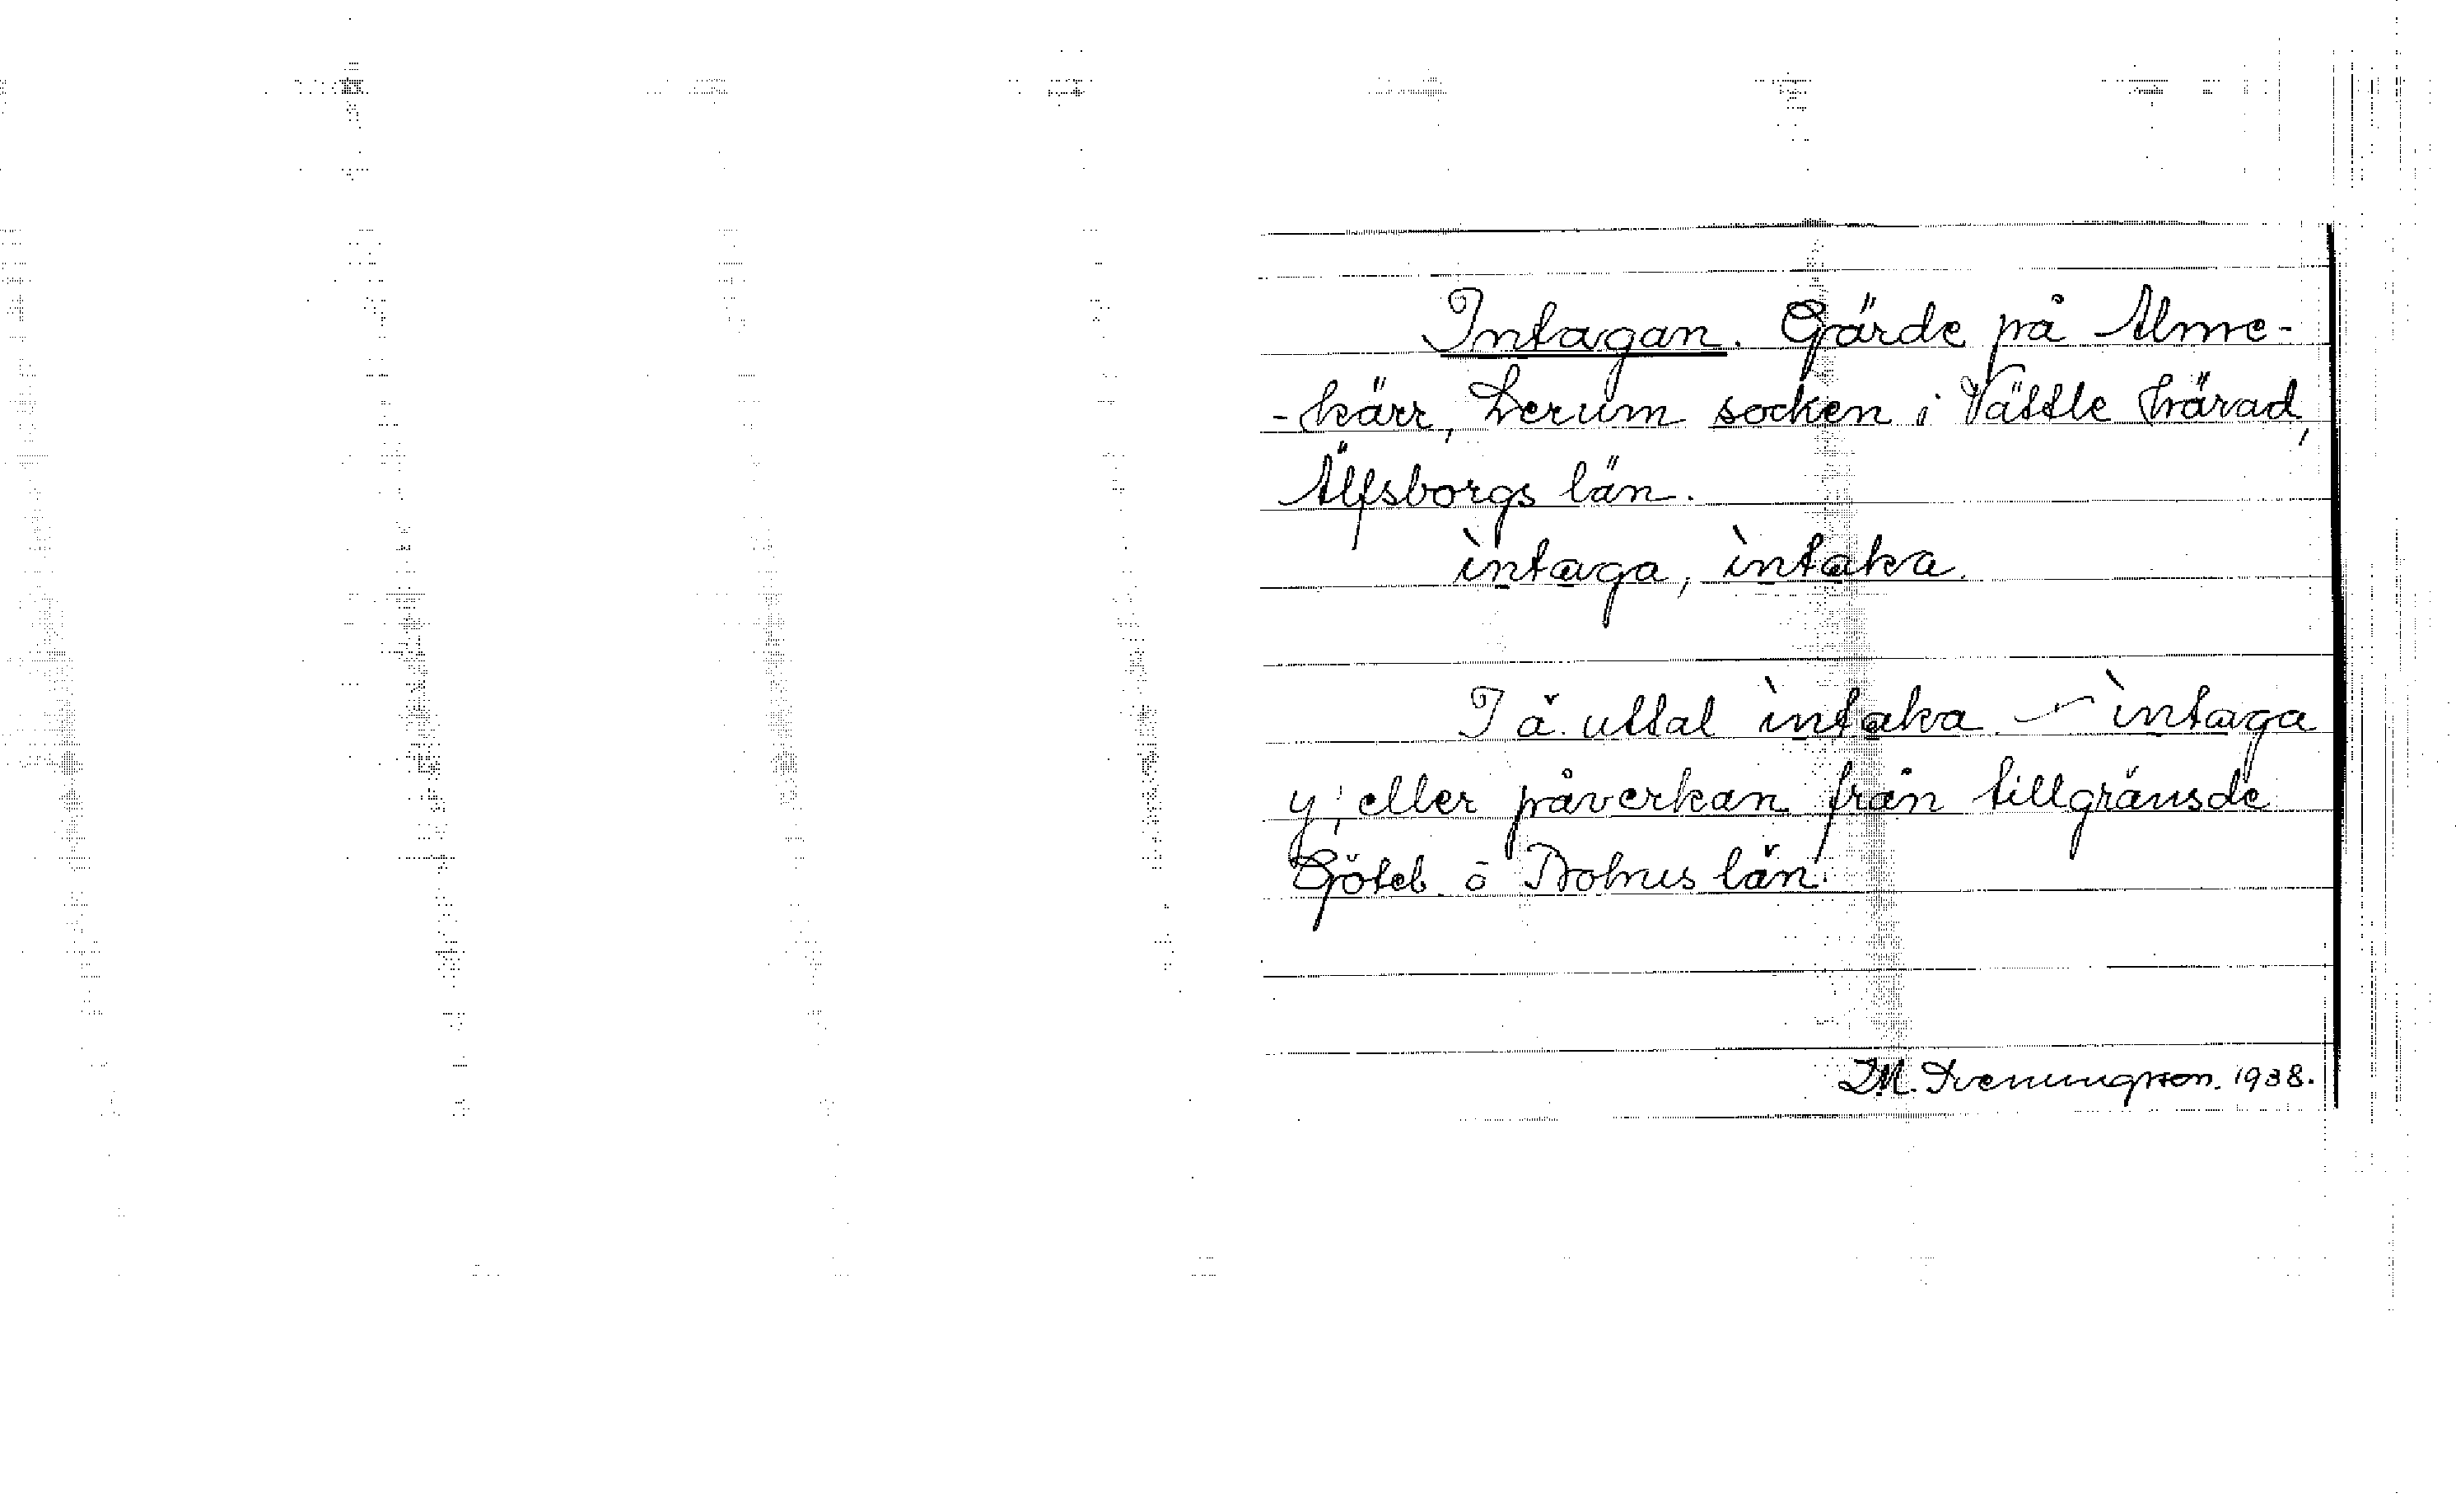 Intagan. Gärde på Alme-
-kärr, Lerum socken i Vättle härad,
Älfsborgs län.
ìntaga, ìntaka.
I ä. uttal ìntaka ìntaga
y; eller påverkan från tillgränsde
Göteb. o Bohus län.
1938.